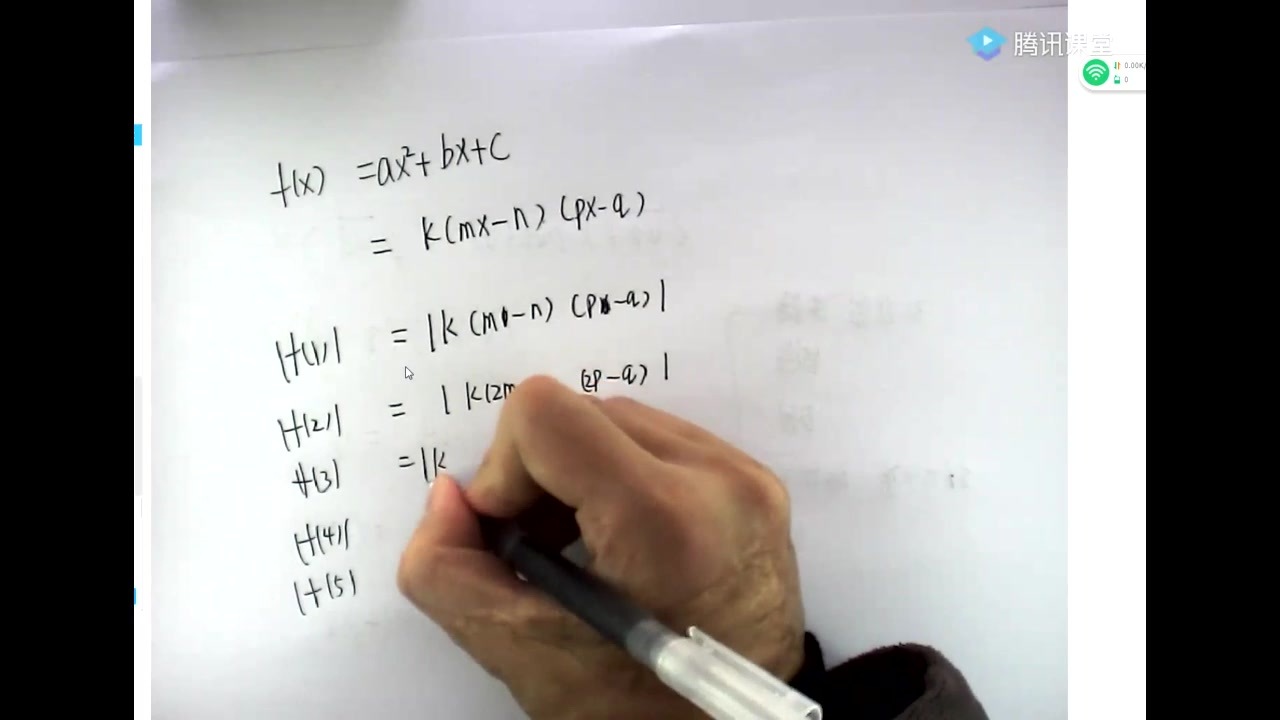 腾讯课堂
0.00K/
0
f(x) =ax²+bx+c
= k(mx-n)(px-q)
|f(1)| = |k(m-n)(p-q)|
|f(2)| = |k(2m (2p-q)|
f(3)| =|k
|f(4)|
|f(5)|